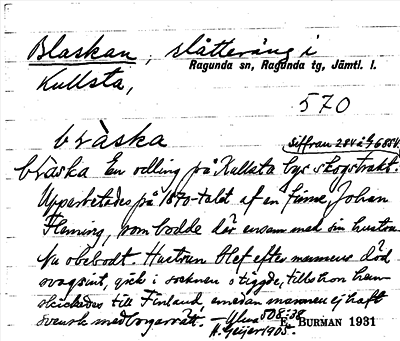 Blaskan, slåtteräng i
Ragunda sn, Ragunda tg, Jämtl. l.
Kullsta,
570
bràska
siffran 284 å 6854.
bràska En odling på Kullsta bys skogstrakt.
Upparbetades på 1870-talet af en finne, Johan
Fleming, som bodde där ensam med sin hustru.
Nu obebodt. Hustrun blef efter mannens död
svagsint, gick i socknen o tiggde, tills hon
skickades till Finland, emedan mannen ej haft
svensk medborgarrätt. – Uhns 508:38
H. Geijer 1905.
E. BURMAN 1931